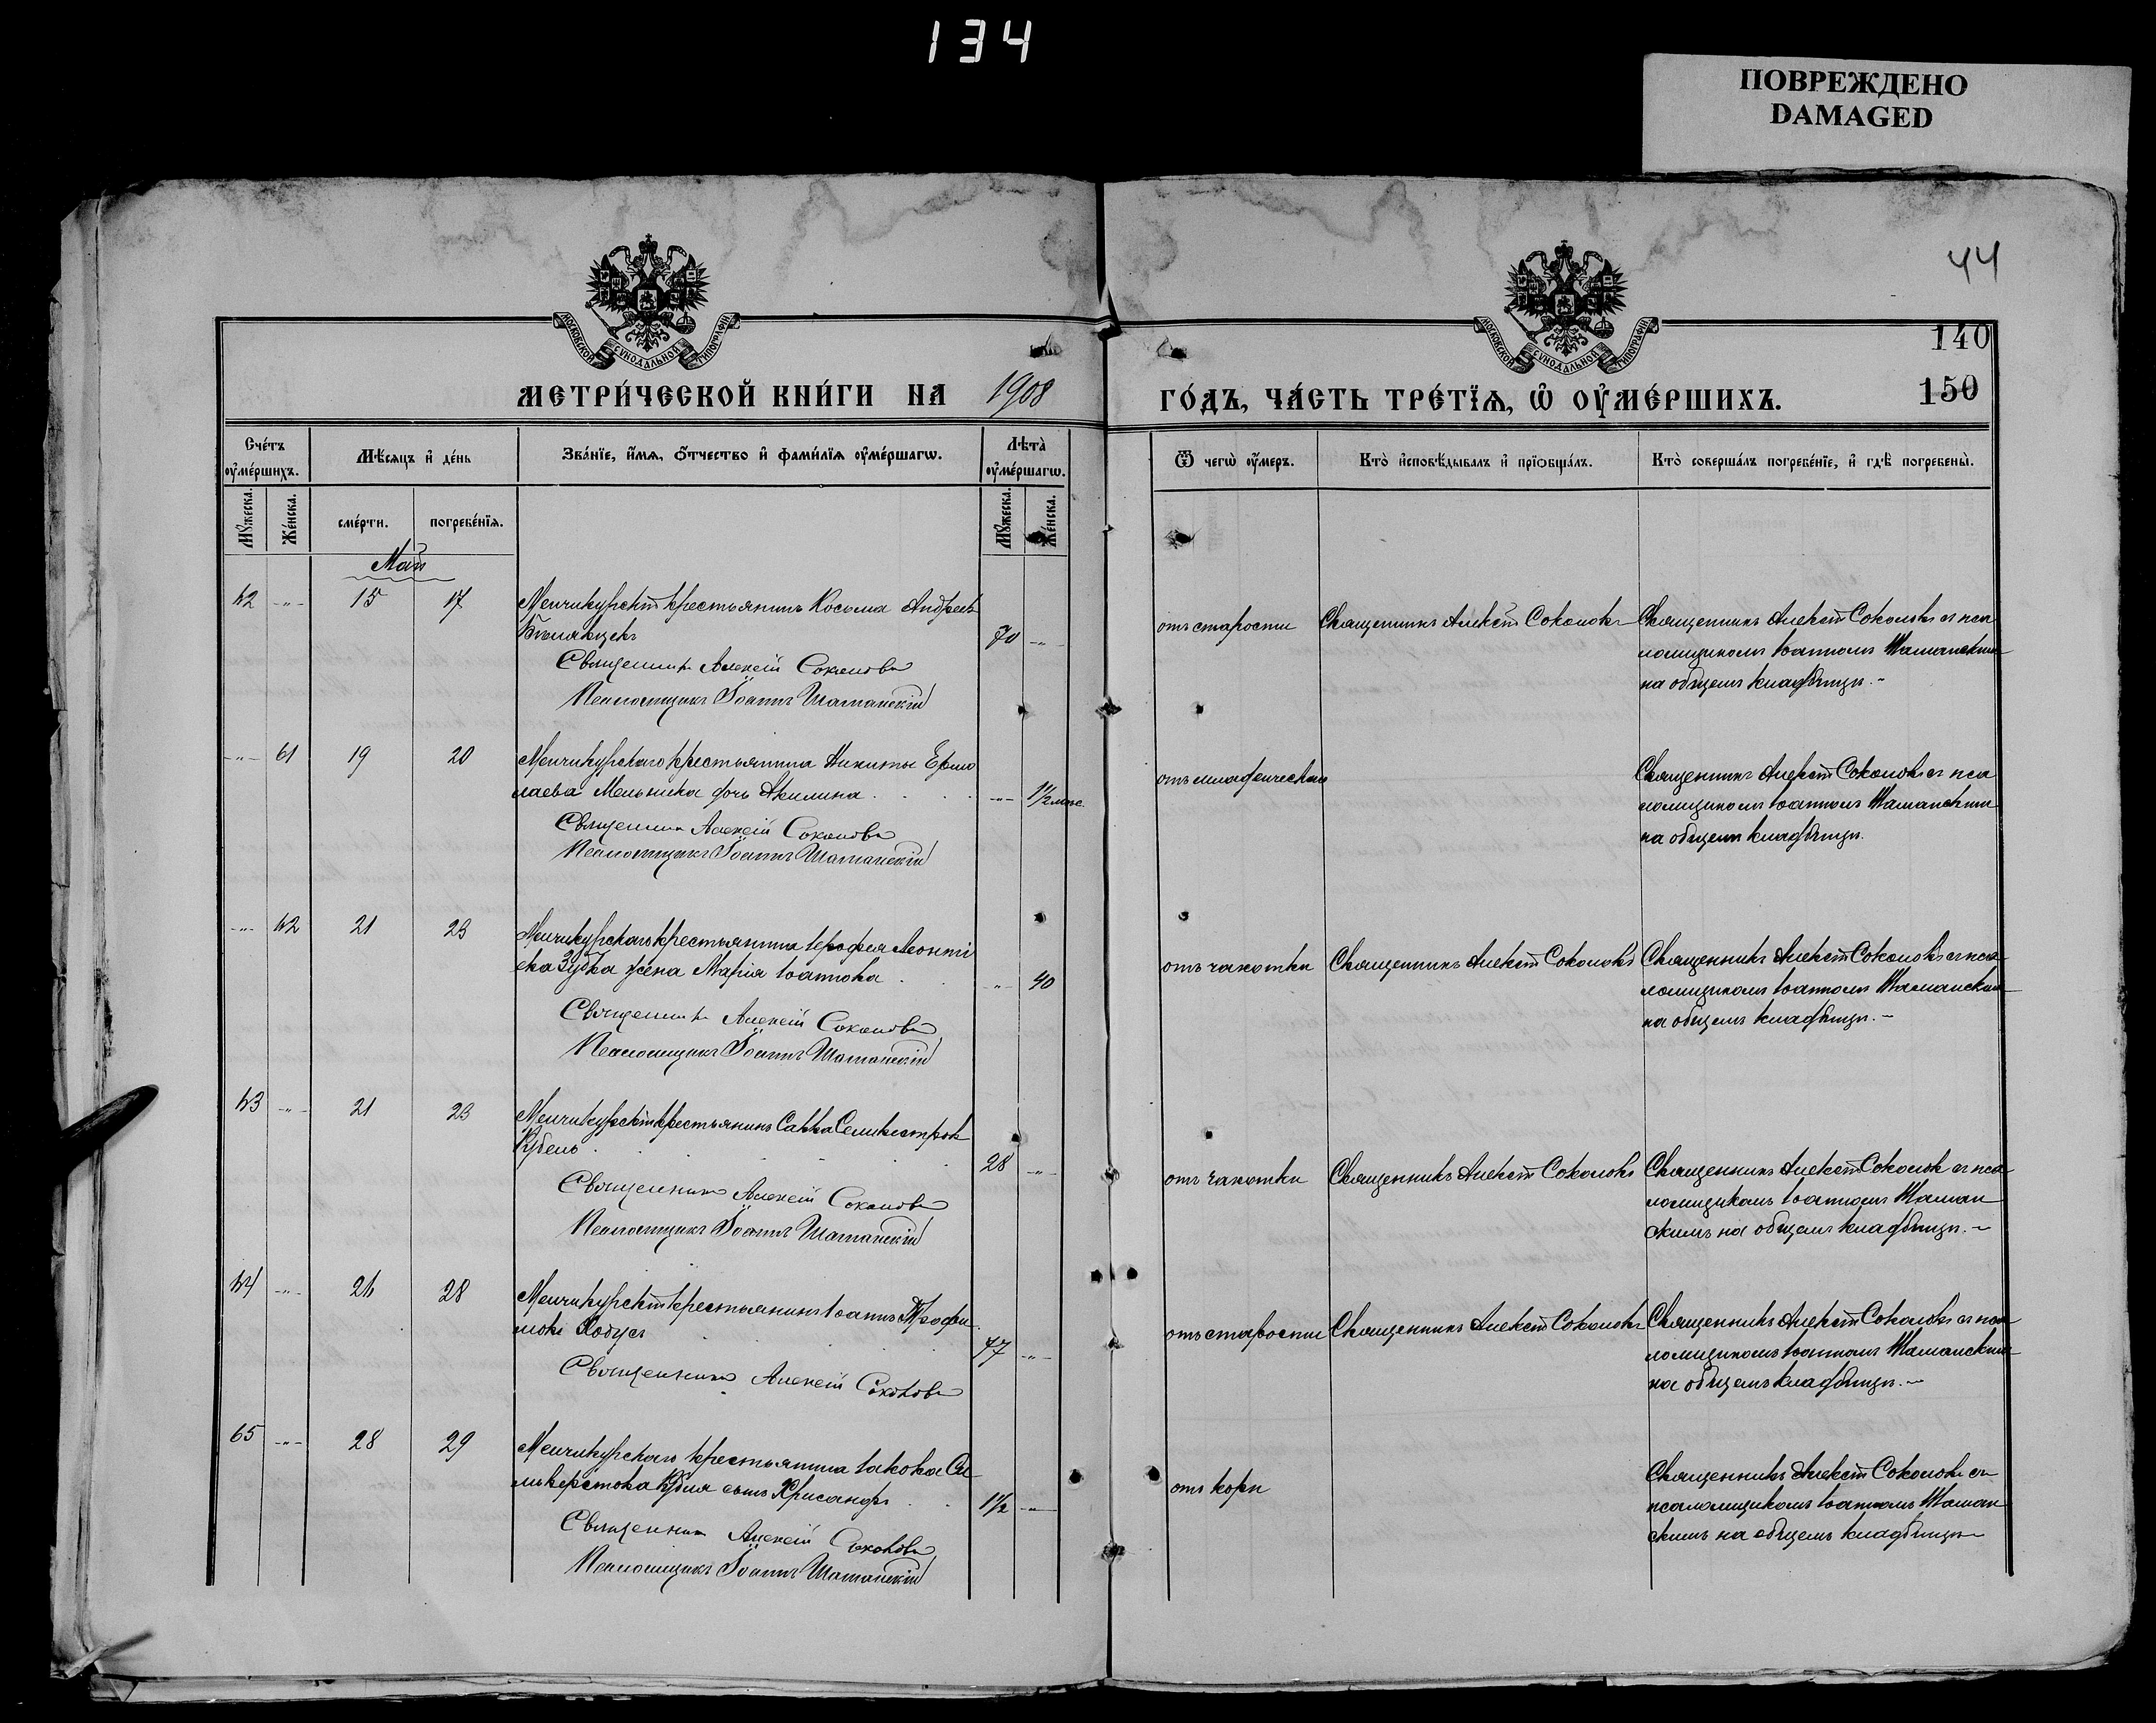 134
ПОВРЕЖДЕНО
DAMAGED
44
140
150
МОСКОВСКОЙ СѴНОДАЛЬНОЙ ТИПОГРАФІИ
МОСКОВСКОЙ СѴНОДАЛЬНОЙ ТИПОГРАФІИ
МЕТРИ́ЧЕСКОЙ КНИ́ГИ НА 1908 ГО́ДЪ, ЧА́СТЬ ТРЕ́ТЇѦ, Ѽ ОУ҆МЕ́РШИХЪ.
Сче́тъ оу҆ме́ршихъ.
Мѣ́сяцъ и҆ де́нь
Зва́нїе, и҆́мѧ, ѻ҆́тчество и҆ фами́лїѧ оу҆ме́ршагѡ.
Лѣ́та оу҆ме́ршагѡ.
Ѿ чегѡ̀ оу҆́меръ.
Кто̀ и҆сповѣ́дывалъ и҆ прїѡбща́лъ.
Кто̀ соверша́лъ погребе́нїе, и҆ гдѣ̀ погребены̀.
Мꙋ́жеска.
Же́нска.
сме́рти.
погребе́нїѧ.
Мꙋ́жеска.
Же́нска.
Май
62 -"- 15 17 Менчикурскій крестьянинъ Косьма Андреевъ
70 -"-
Священникъ Алексій Соколовъ
Псаломщикъ Іоаннъ Шаманскій
отъ старости Священникъ Алексій Соколовъ Священникъ Алексій Соколовъ съ пса
ломщикомъ Іоанномъ Шаманскимъ
на общемъ кладбищѣ.-
-"- 61 19 20 Менчикурскаго крестьянина Никиты Ермо
лаева Мельника дочь Акилина 1½ мѣс.
Священникъ Алексій Соколовъ
Псаломщикъ Іоаннъ Шаманскій
отъ младенческой Священникъ Алексій Соколовъ съ пса
ломщикомъ Іоанномъ Шаманскимъ
на общемъ кладбищѣ.
-"- 62 21 23 Менчикурскаго крестьянина Іерофея Леонті
ева Зубка жена Марія Іоаннова -"- 40
Священникъ Алексій Соколовъ
Псаломщикъ Іоаннъ Шаманскій
отъ чахотки Священникъ Алексій Соколовъ Священникъ Алексій Соколовъ съ пса
ломщикомъ Іоанномъ Шаманскимъ
на общемъ кладбищѣ.-
63 -"- 21 23 Менчикурскій крестьянинъ Савва Селивестровъ
Кубель 28 -"-
Священникъ Алексій Соколовъ
Псаломщикъ Іоаннъ Шаманскій
отъ чахотки Священникъ Алексій Соколовъ Священникъ Алексій Соколовъ съ пса
ломщикомъ Іоанномъ Шаман
скимъ на общемъ кладбищѣ.-
64 -"- 26 28 Менчикурскій крестьянинъ Іоаннъ Трофи
мовъ 77 -"-
Священникъ Алексій Соколовъ
отъ старости Священникъ Алексій Соколовъ Священникъ Алексій Соколовъ съ пса
ломщикомъ Іоанномъ Шаманскимъ
на общемъ кладбищѣ.-
65 -"- 28 29 Менчикурскаго крестьянина Іакова Си
льверстова Кубля сынъ Хрисанфъ 1½ -"-
Священникъ Алексій Соколовъ
Псаломщикъ Іоаннъ Шаманскій
отъ кори Священникъ Алексій Соколовъ съ
псаломщикомъ Іоанномъ Шаман
скимъ на общемъ кладбищѣ